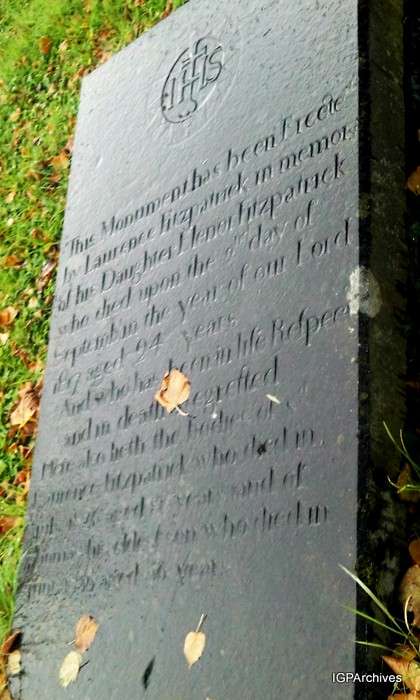 IHS
This Monument has been Erecte
by Laurence fitzpatrick in memory
of his Daughter Elenor fitzpatrick
who died upon the 2nd day of
Septemb in the year of our Lord
1817 aged 24 years.
And who has been in life Respect
and in death regretted
Here also lieth the bodies of
Laurence fitzpatrick who died in
aged years and of
Thomas his eldest son who died in
aged 36 years
IGPArchives